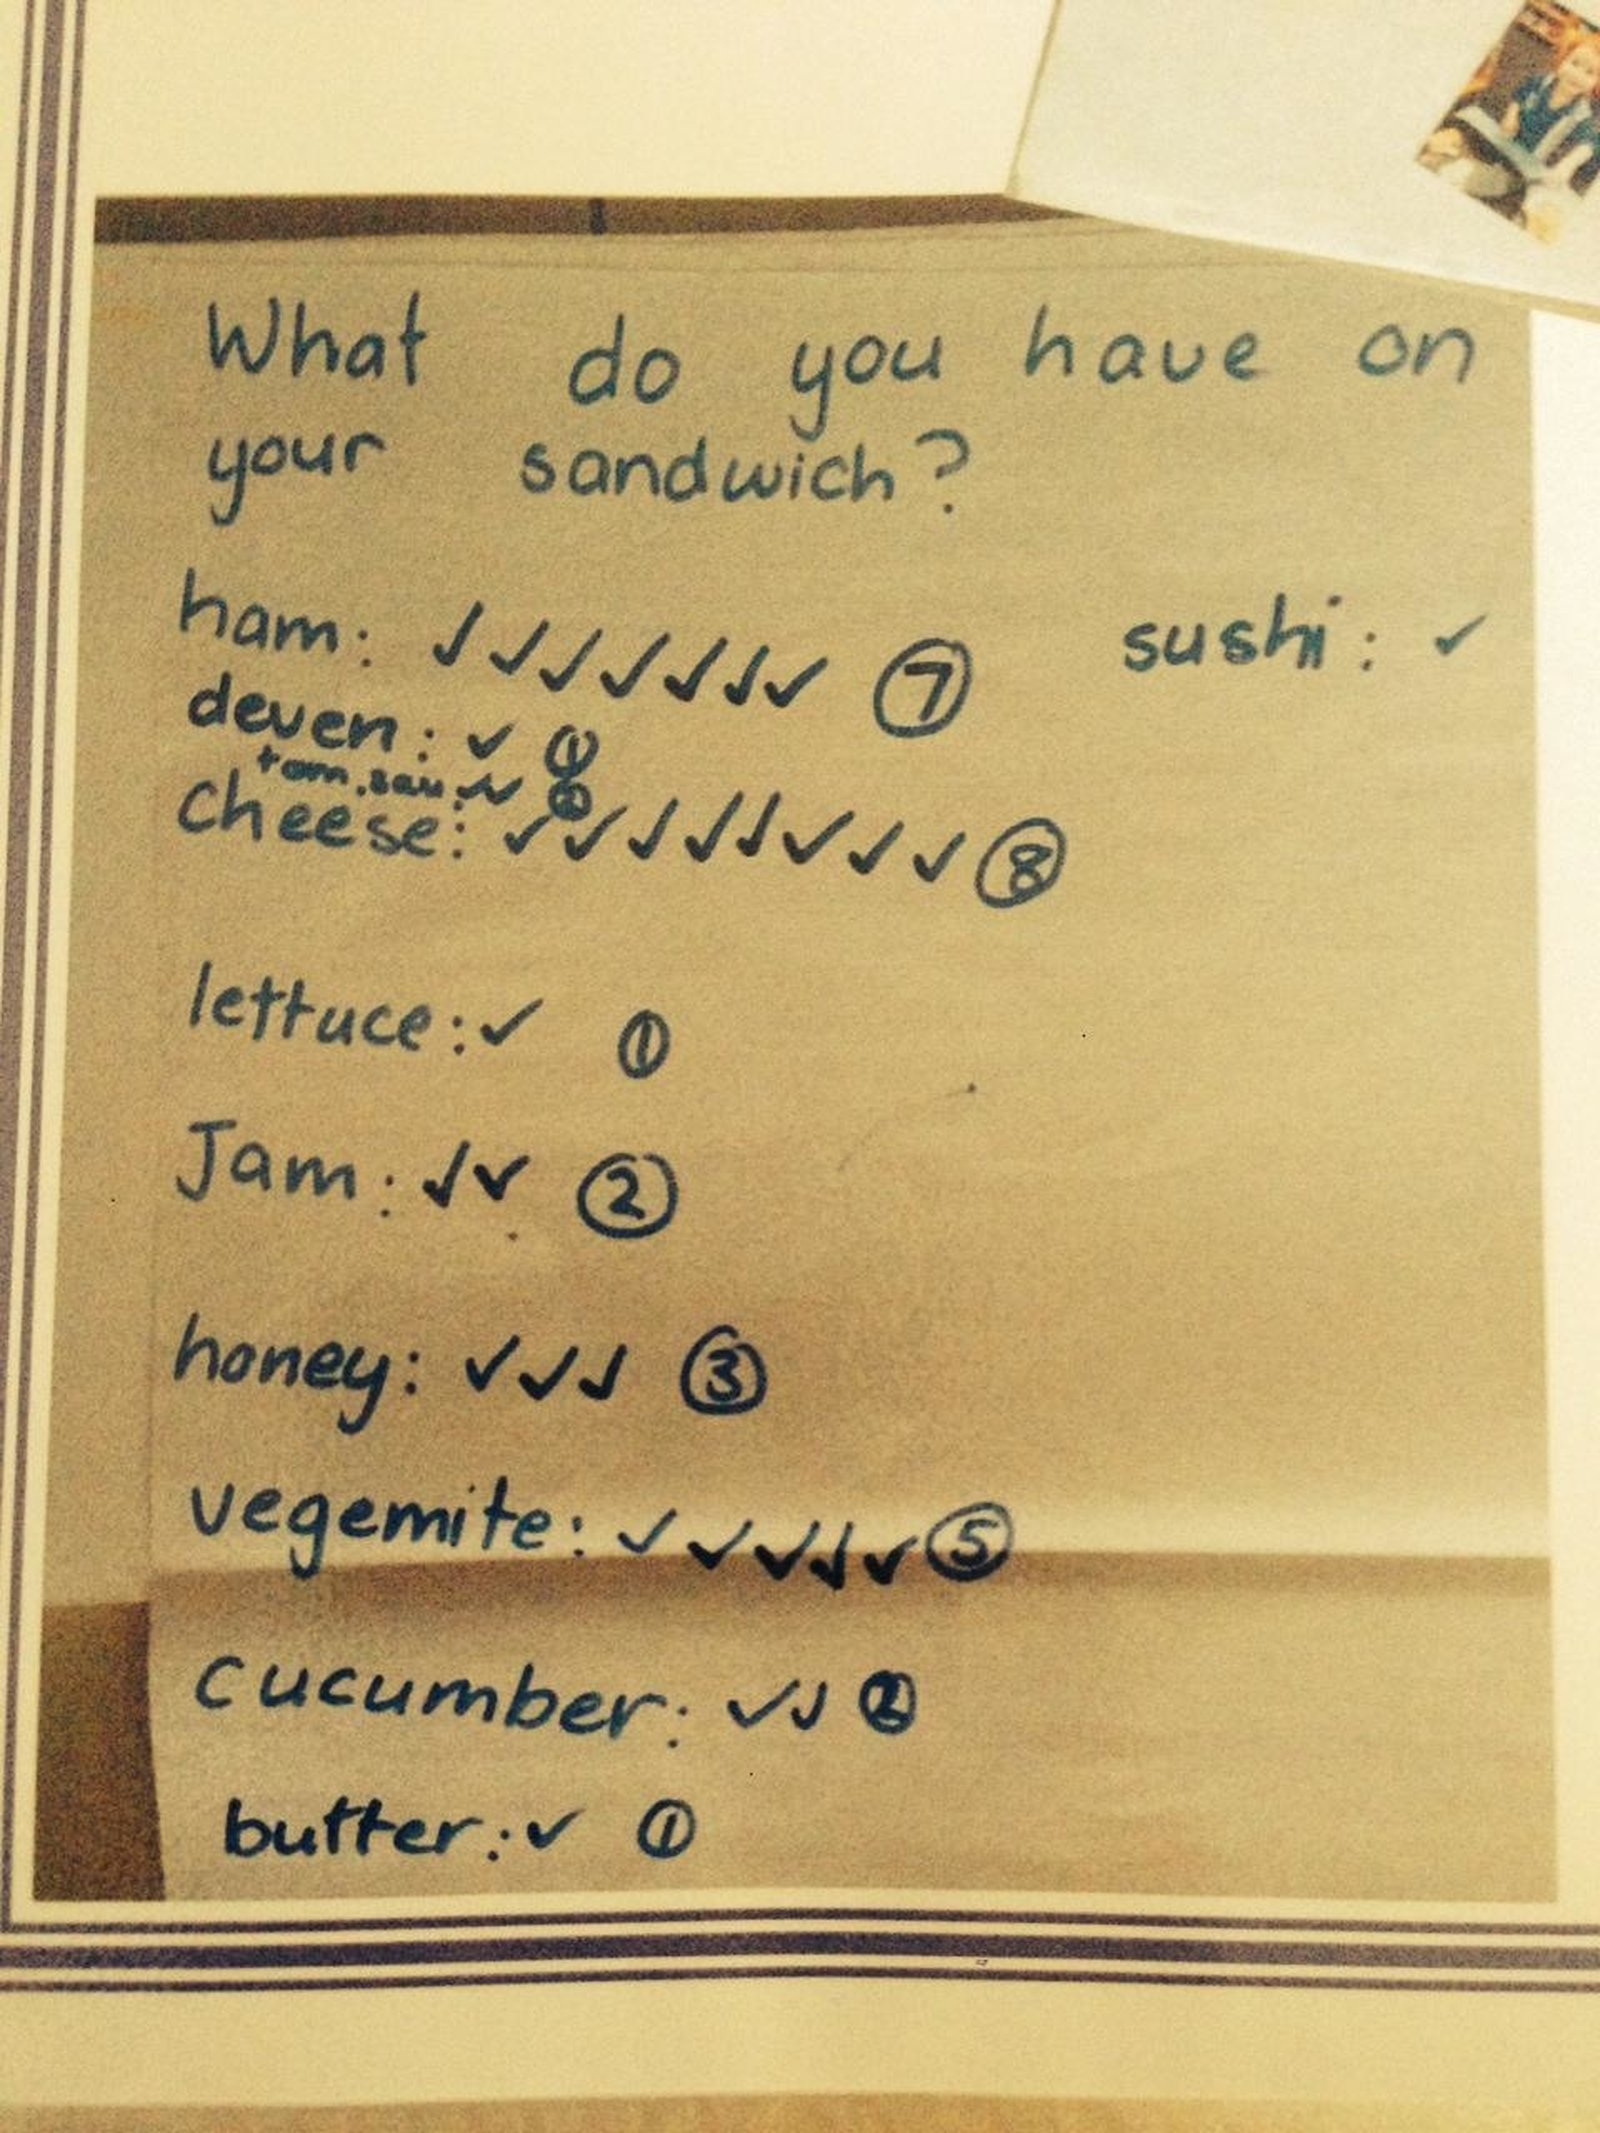 What do you have on
your sandwich?
ham: ✓✓✓✓✓✓✓ ⑦ sushi: ✓
deven: ✓ ①
tom. sau: ✓✓ ②
cheese: ✓✓✓✓✓✓✓✓ ⑧
lettuce: ✓ ①
Jam: ✓✓ ②
honey: ✓✓✓ ③
vegemite: ✓✓✓✓✓ ⑤
cucumber: ✓✓ ②
butter: ✓ ①